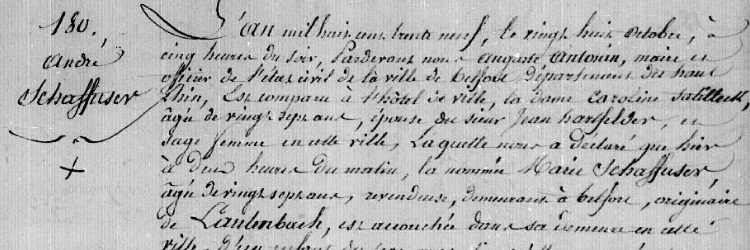 180.
André
Schaffuser
L'an mil huit cent trente neuf, le vingt huit octobre, à
cinq heures du soir, Pardevant nous auguste antonin, maire et
officier de l'état civil de la ville de belfort département du haut
Rhin, Est comparu à l'hôtel de ville, la dame Caroline
âgée de vingt sept ans, épouse du sieur Jean hartfelder, et
sage femme en cette ville, Laquelle nous a déclaré que hier
à deux heures du matin, la nommée Marie Schaffuser
âgée de vingt sept ans, revendeuse, demeurant à belfort, originaire
de Lautenbach, est accouchée dans sa demeure en cette
ville